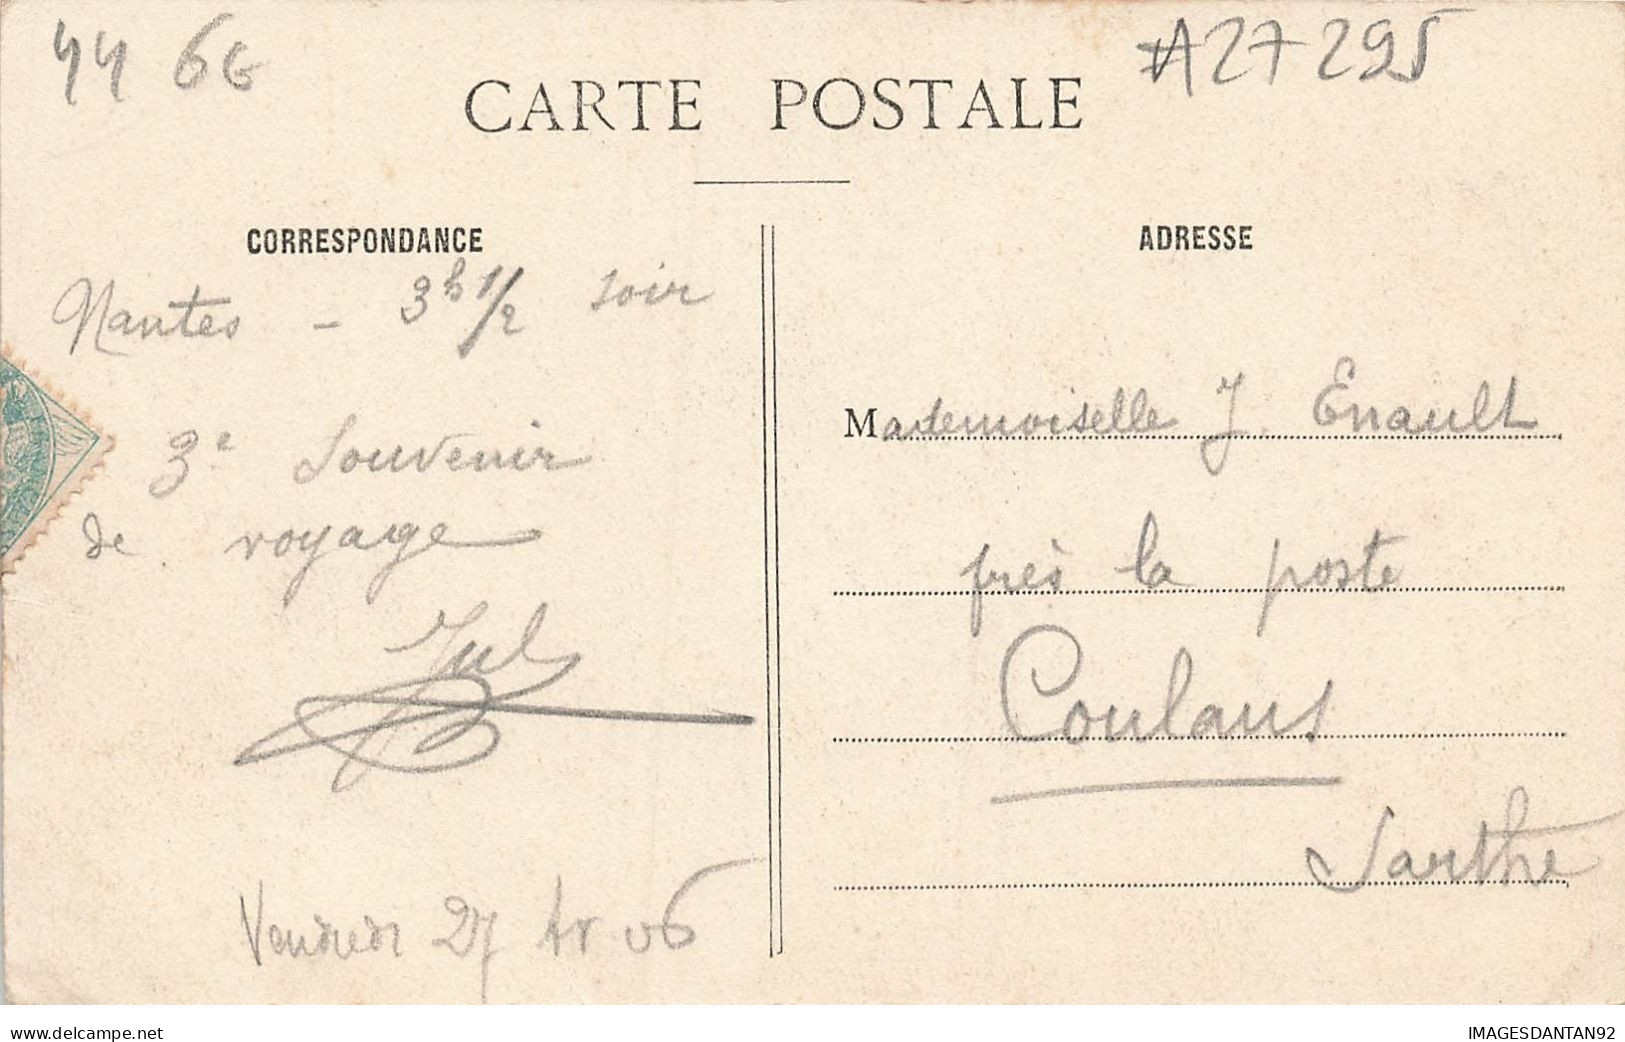 44 6G
A27295
CARTE POSTALE
CORRESPONDANCE
Nantes - 3h 1/2 soir
3e Souvenir
de voyage
Jul
Vendredi 27 Av. 06
ADRESSE
Mademoiselle J. Enault
près la poste
Coulans
Sarthe
www.delcampe.net
IMAGESDANTAN92